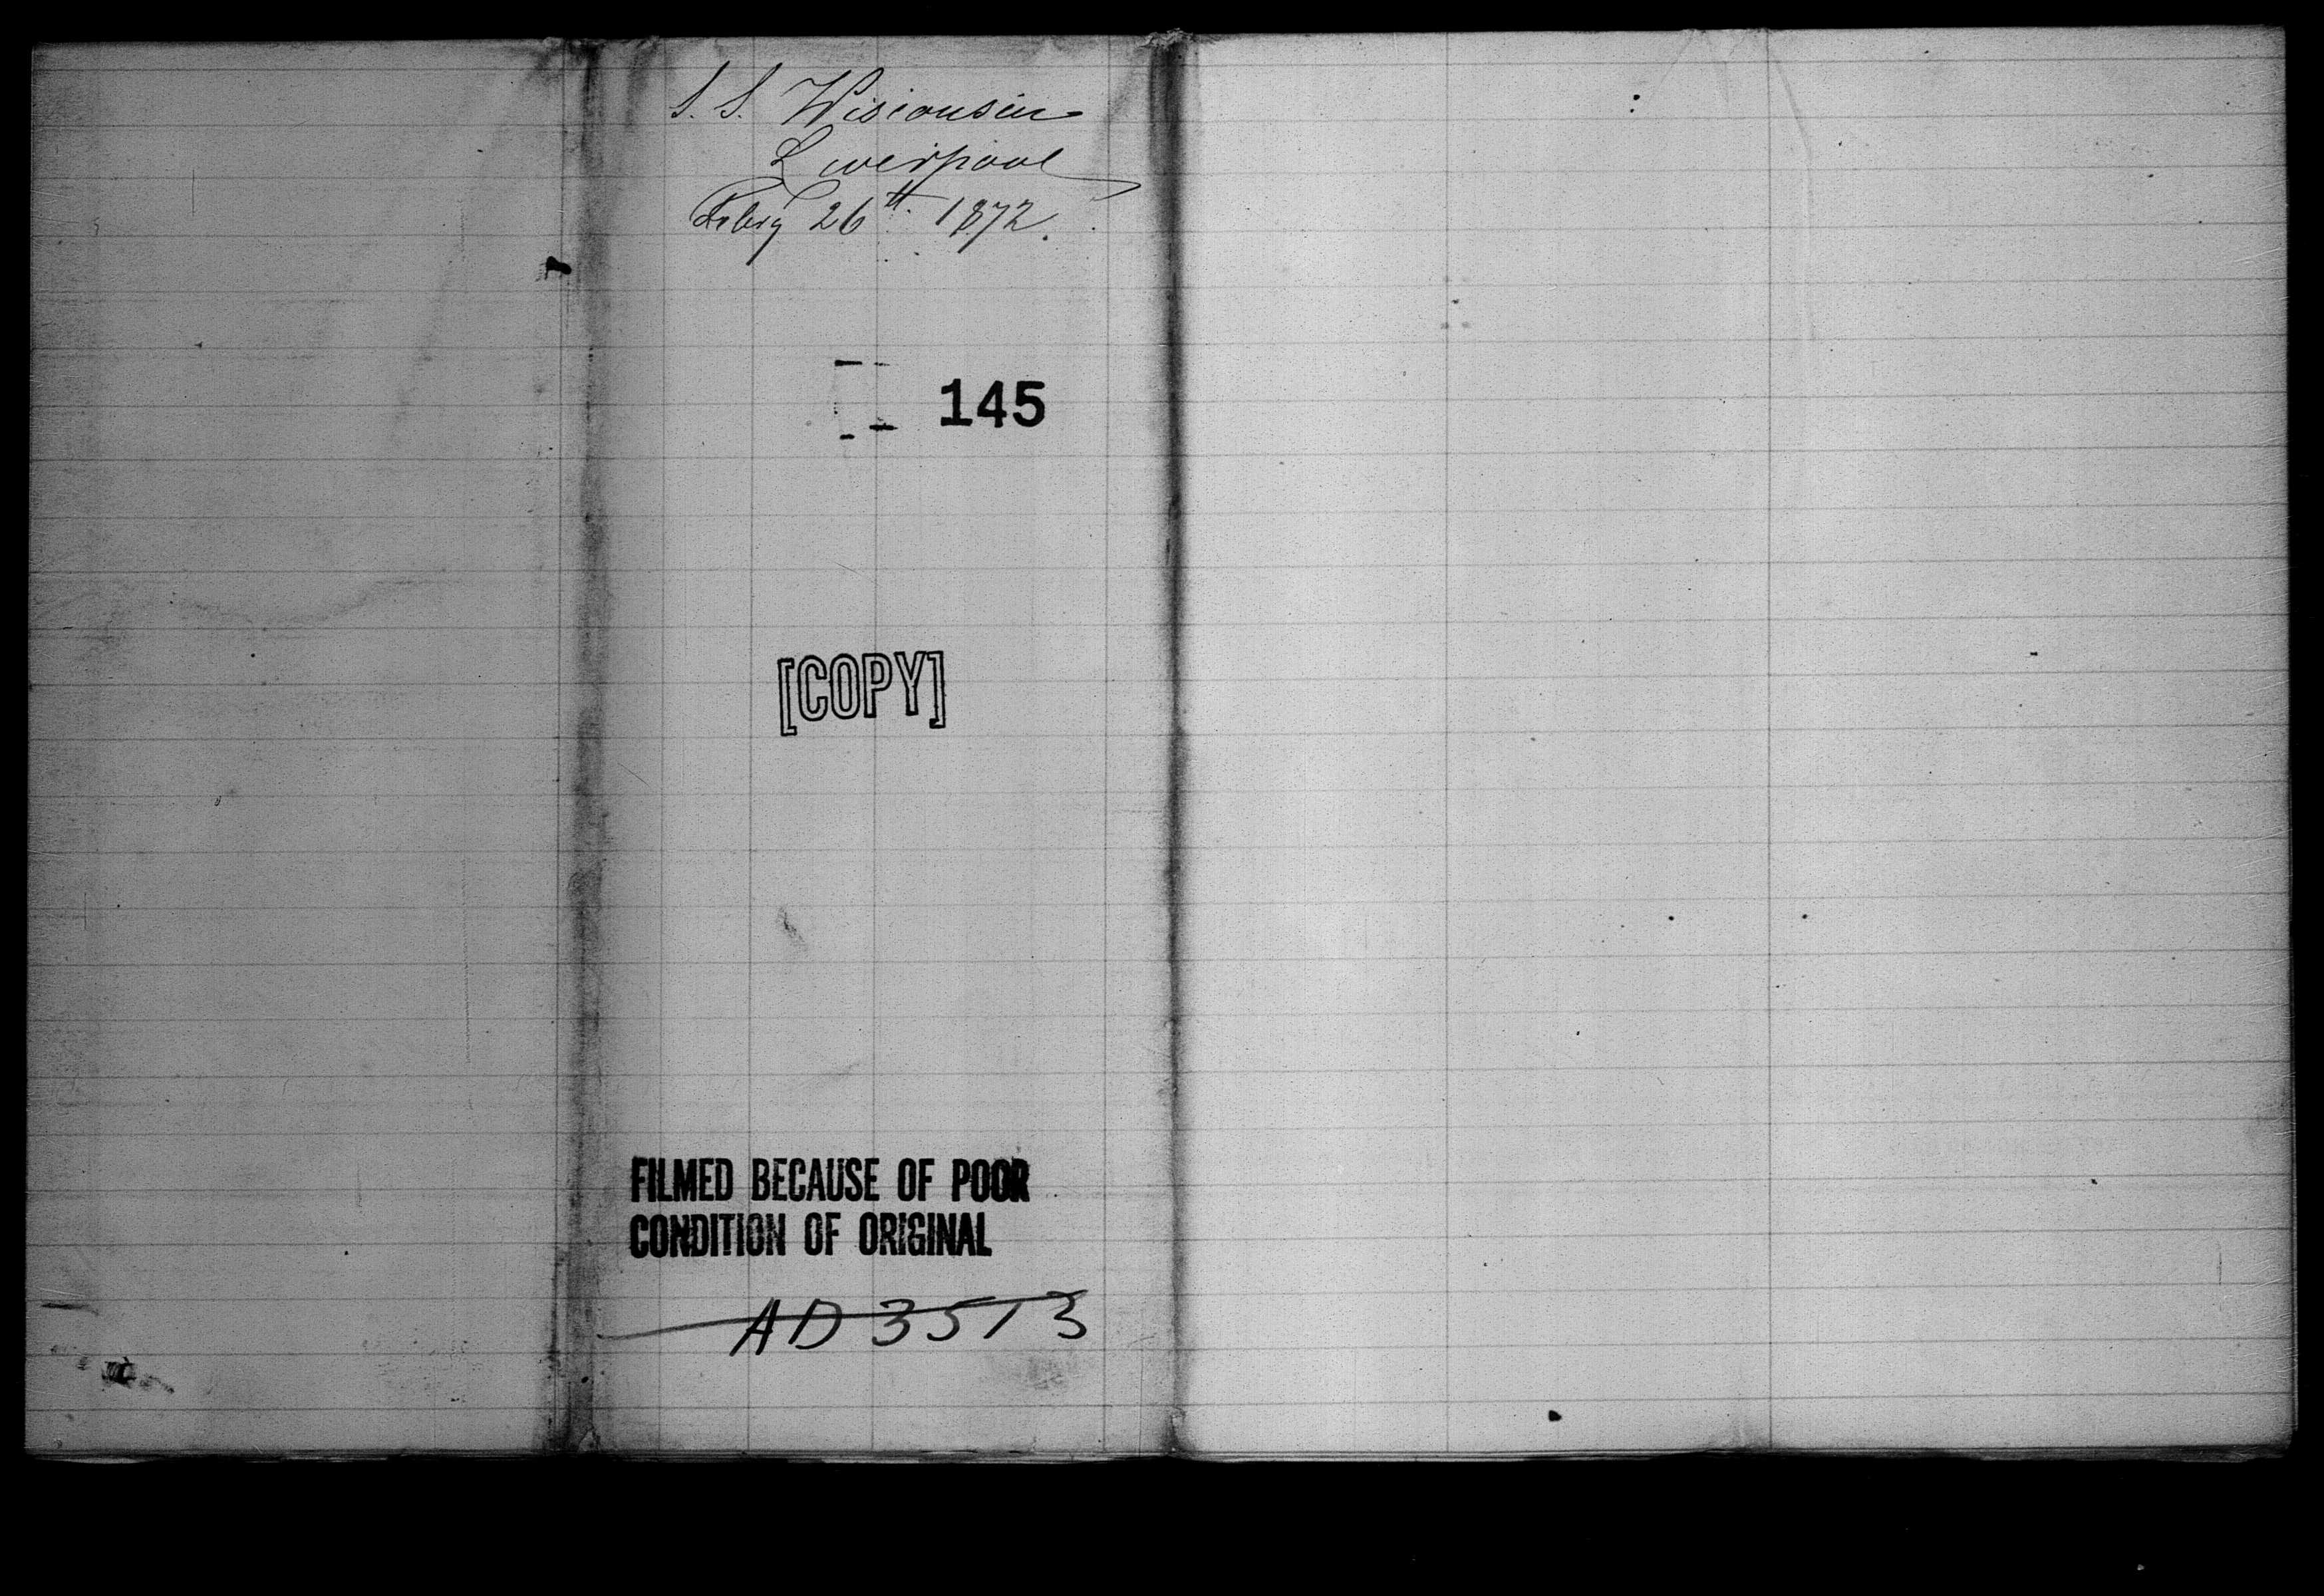 S. S. Wisconsin
Liverpool
Febry 26th 1872.
145
[COPY]
FILMED BECAUSE OF POOR
CONDITION OF ORIGINAL
AD 3513